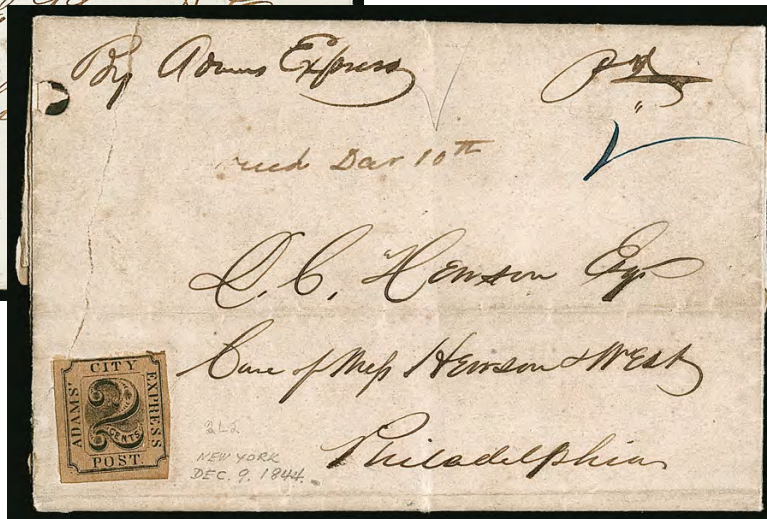 By Adams Express
Pd
recd Dec 10th
Hewson Esqr
Care of Mess Hewson & West
Philadelphia
ADAMS' CITY EXPRESS POST
2
CENTS
2L2
NEW YORK
DEC. 9. 1844.